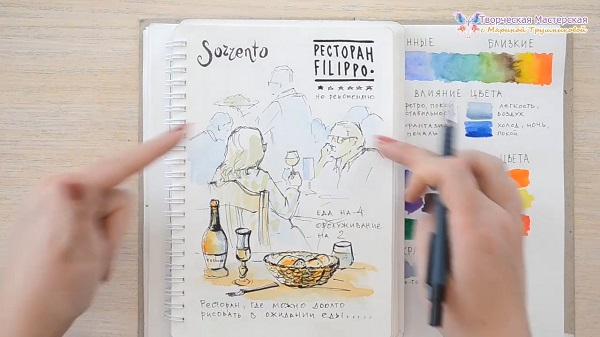 Творческая Мастерская
с Мариной Трушниковой
Sorrento
РЕСТОРАН
FILIPPO.
не рекомендую
ЕДА НА 4
ОБСЛУЖИВАНИЕ
НА 2
РЕСТОРАН, ГДЕ МОЖНО ДОЛГО
РИСОВАТЬ В ОЖИДАНИИ ЕДЫ.....
БЛИЗКИЕ
ВЛИЯНИЕ ЦВЕТА
ЛЕГКОСТЬ,
ВОЗДУХ
ХОЛОД, НОЧЬ,
ПОКОЙ
ЦВЕТА